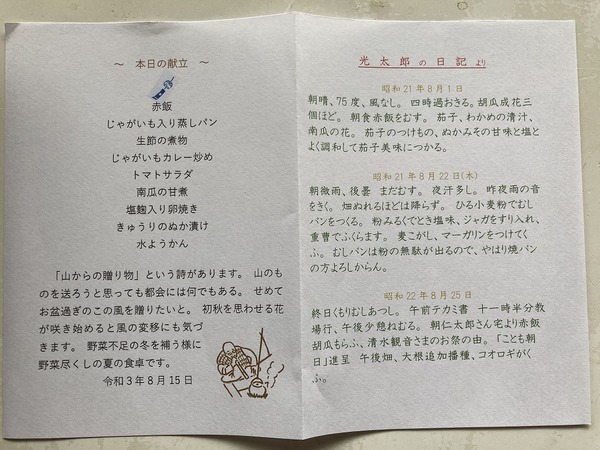 ～ 本日の献立 ～
赤飯
じゃがいも入り蒸しパン
生節の煮物
じゃがいもカレー炒め
トマトサラダ
南瓜の甘煮
塩麹入り卵焼き
きゅうりのぬか漬け
水ようかん
「山からの贈り物」という詩があります。 山のも
のを送ろうと思っても都会には何でもある。 せめて
お盆過ぎのこの風を贈りたいと。 初秋を思わせる花
が咲き始めると風の変移にも気づ
きます。 野菜不足の冬を補う様に
野菜尽くしの夏の食卓です。
令和3年8月15日
光太郎の日記より
昭和21年8月1日
朝晴、75度、風なし。 四時過おきる。胡瓜成花三
個ほど。 朝食赤飯をむす。 茄子、わかめの清汁、
南瓜の花。 茄子のつけもの、ぬかみその甘味と塩と
よく調和して茄子美味につかる。
昭和21年8月22日(木)
朝微雨、後曇 まだむす。 夜汗多し。 昨夜雨の音
をきく。 畑ぬれるほどは降らず。 ひる小麦粉でむし
パンをつくる。 粉みるくでとき塩味、ジャガをすり入れ、
重曹でふくらます。 麦こがし、マーガリンをつけてく
ふ。 むしパンは粉の無駄が出るので、やはり焼パン
の方よろしからん。
昭和22年8月25日
終日くもりむしあつし。 午前テカミ書 十一時半分教
場行、午後少憩ねむる。 朝仁太郎さん宅より赤飯
胡瓜もらふ、清水観音さまのお祭の由。 「こども朝
日」進呈 午後畑、大根追加播種、コオロギがく
ふ。